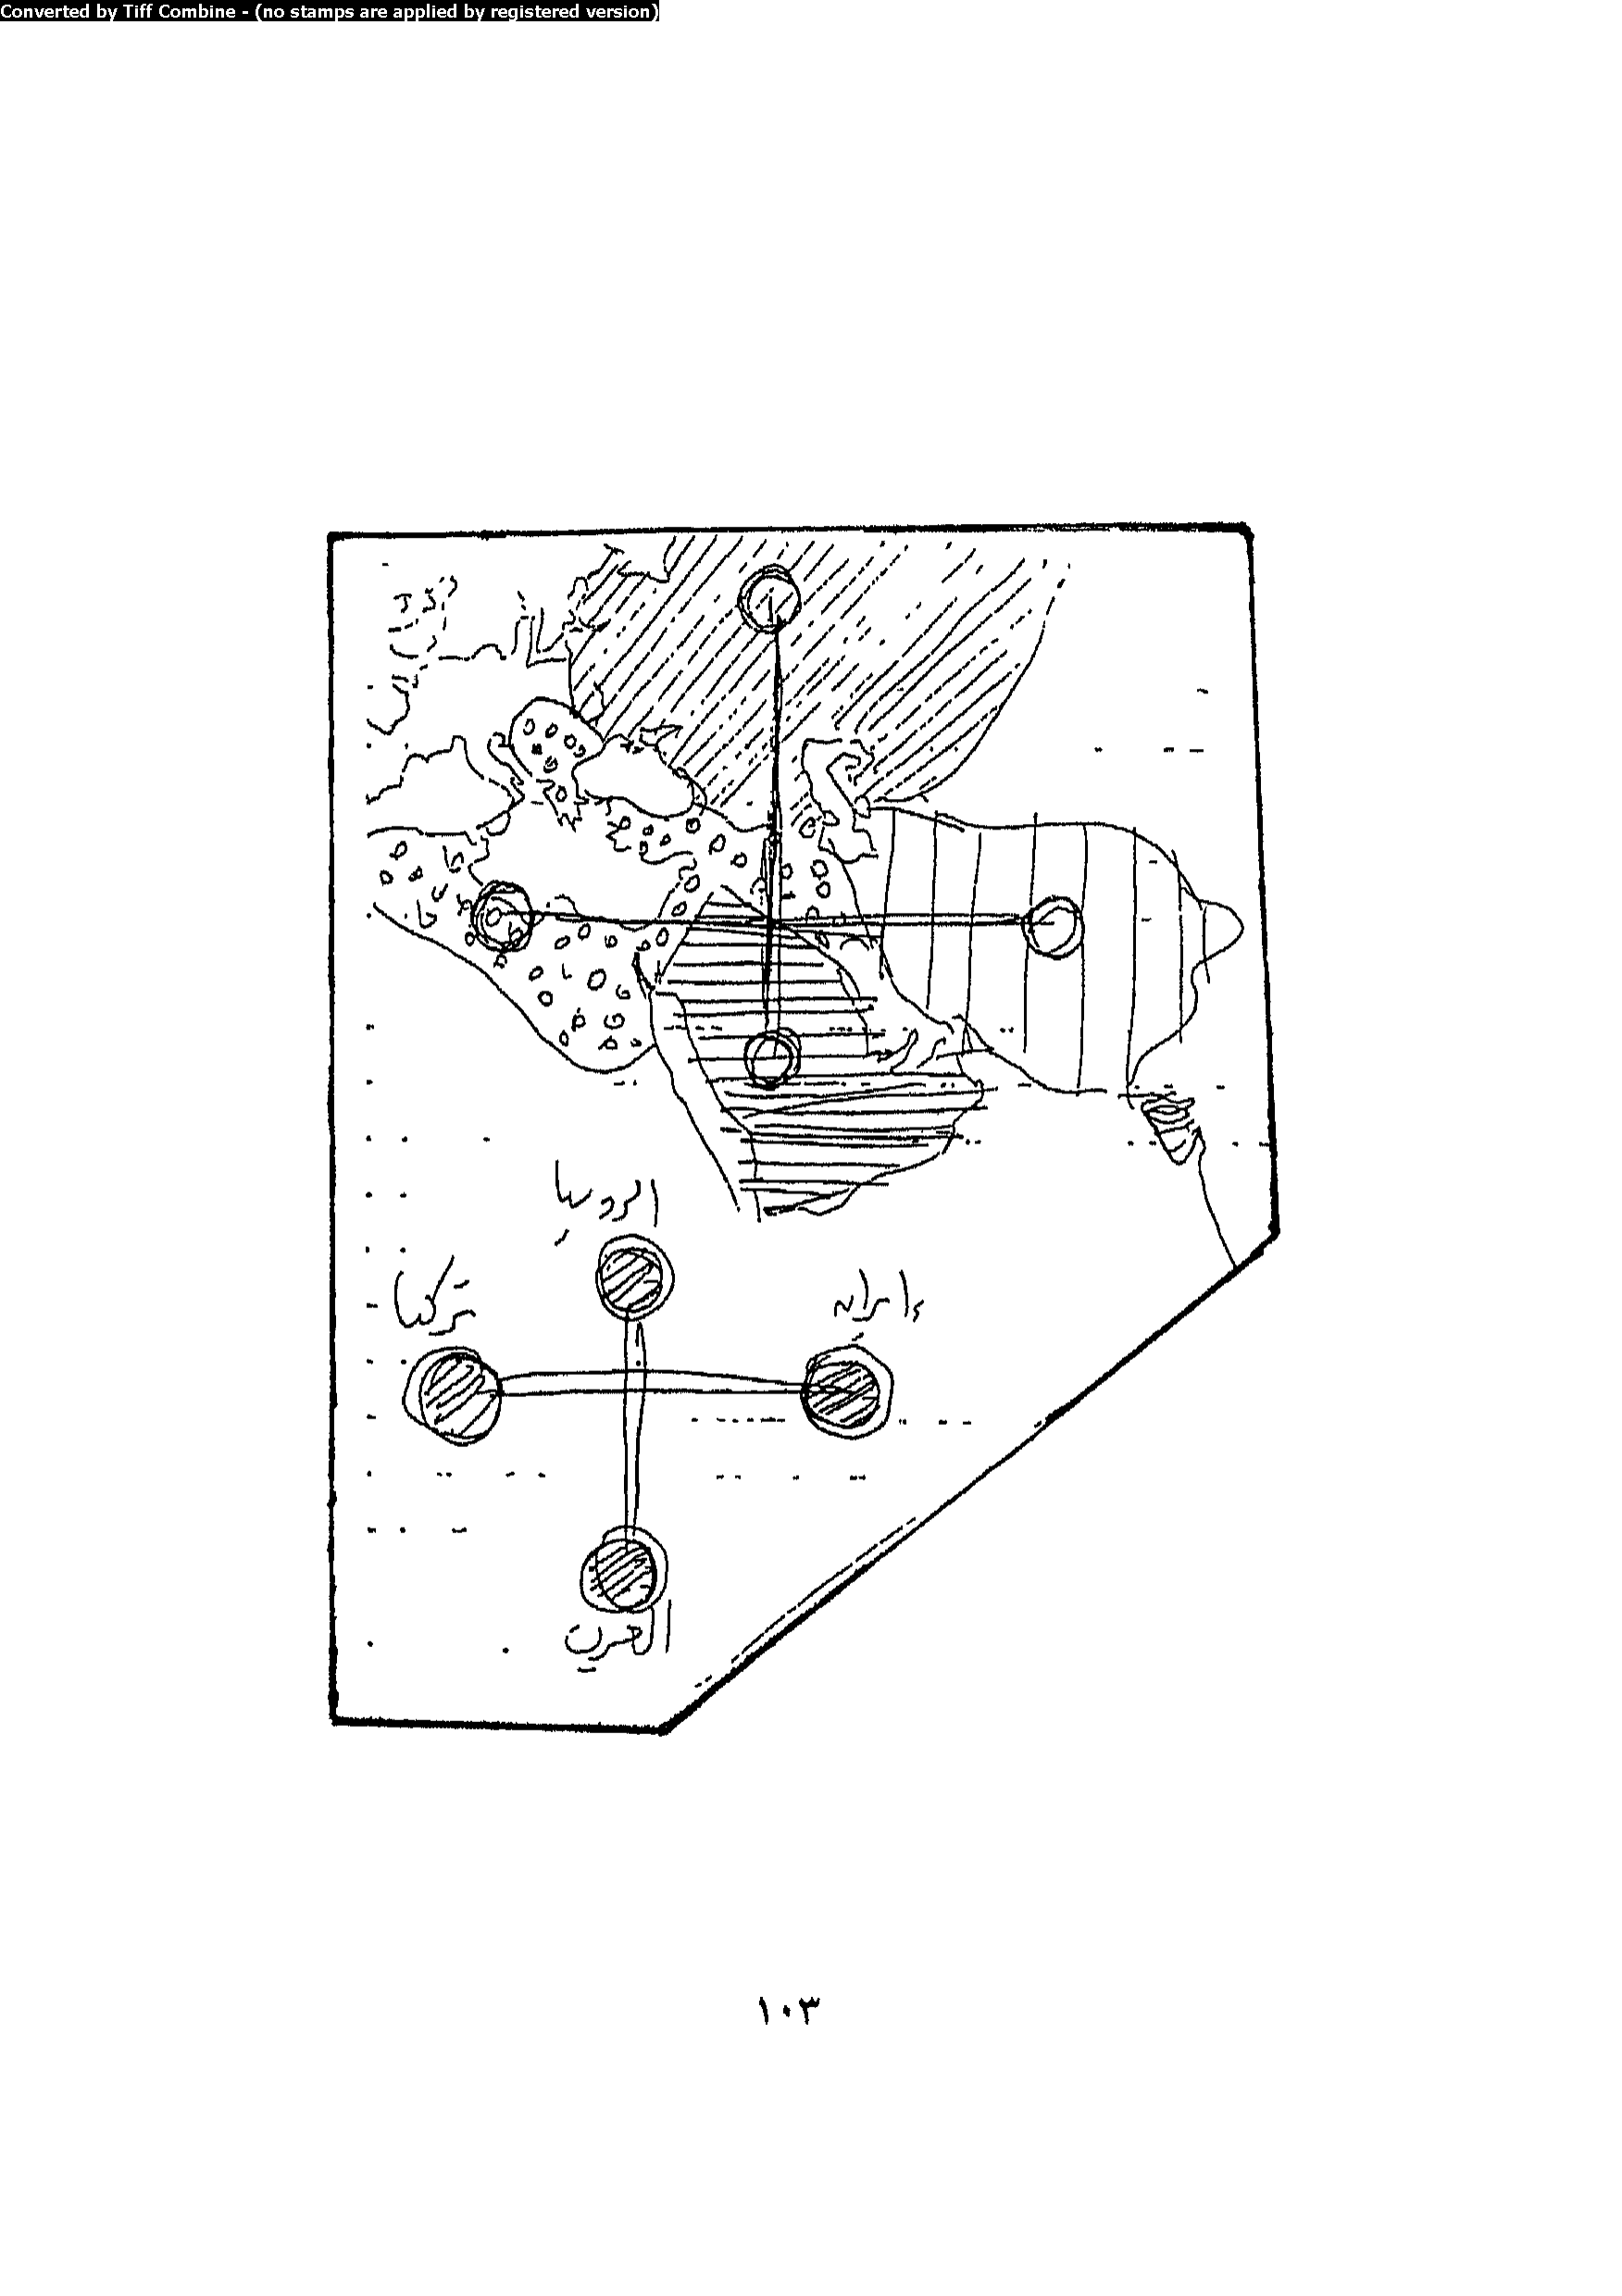 Converted by Tiff Combine - (no stamps are applied by registered version)
الروسيا
تركيا
العرب
١٠٣